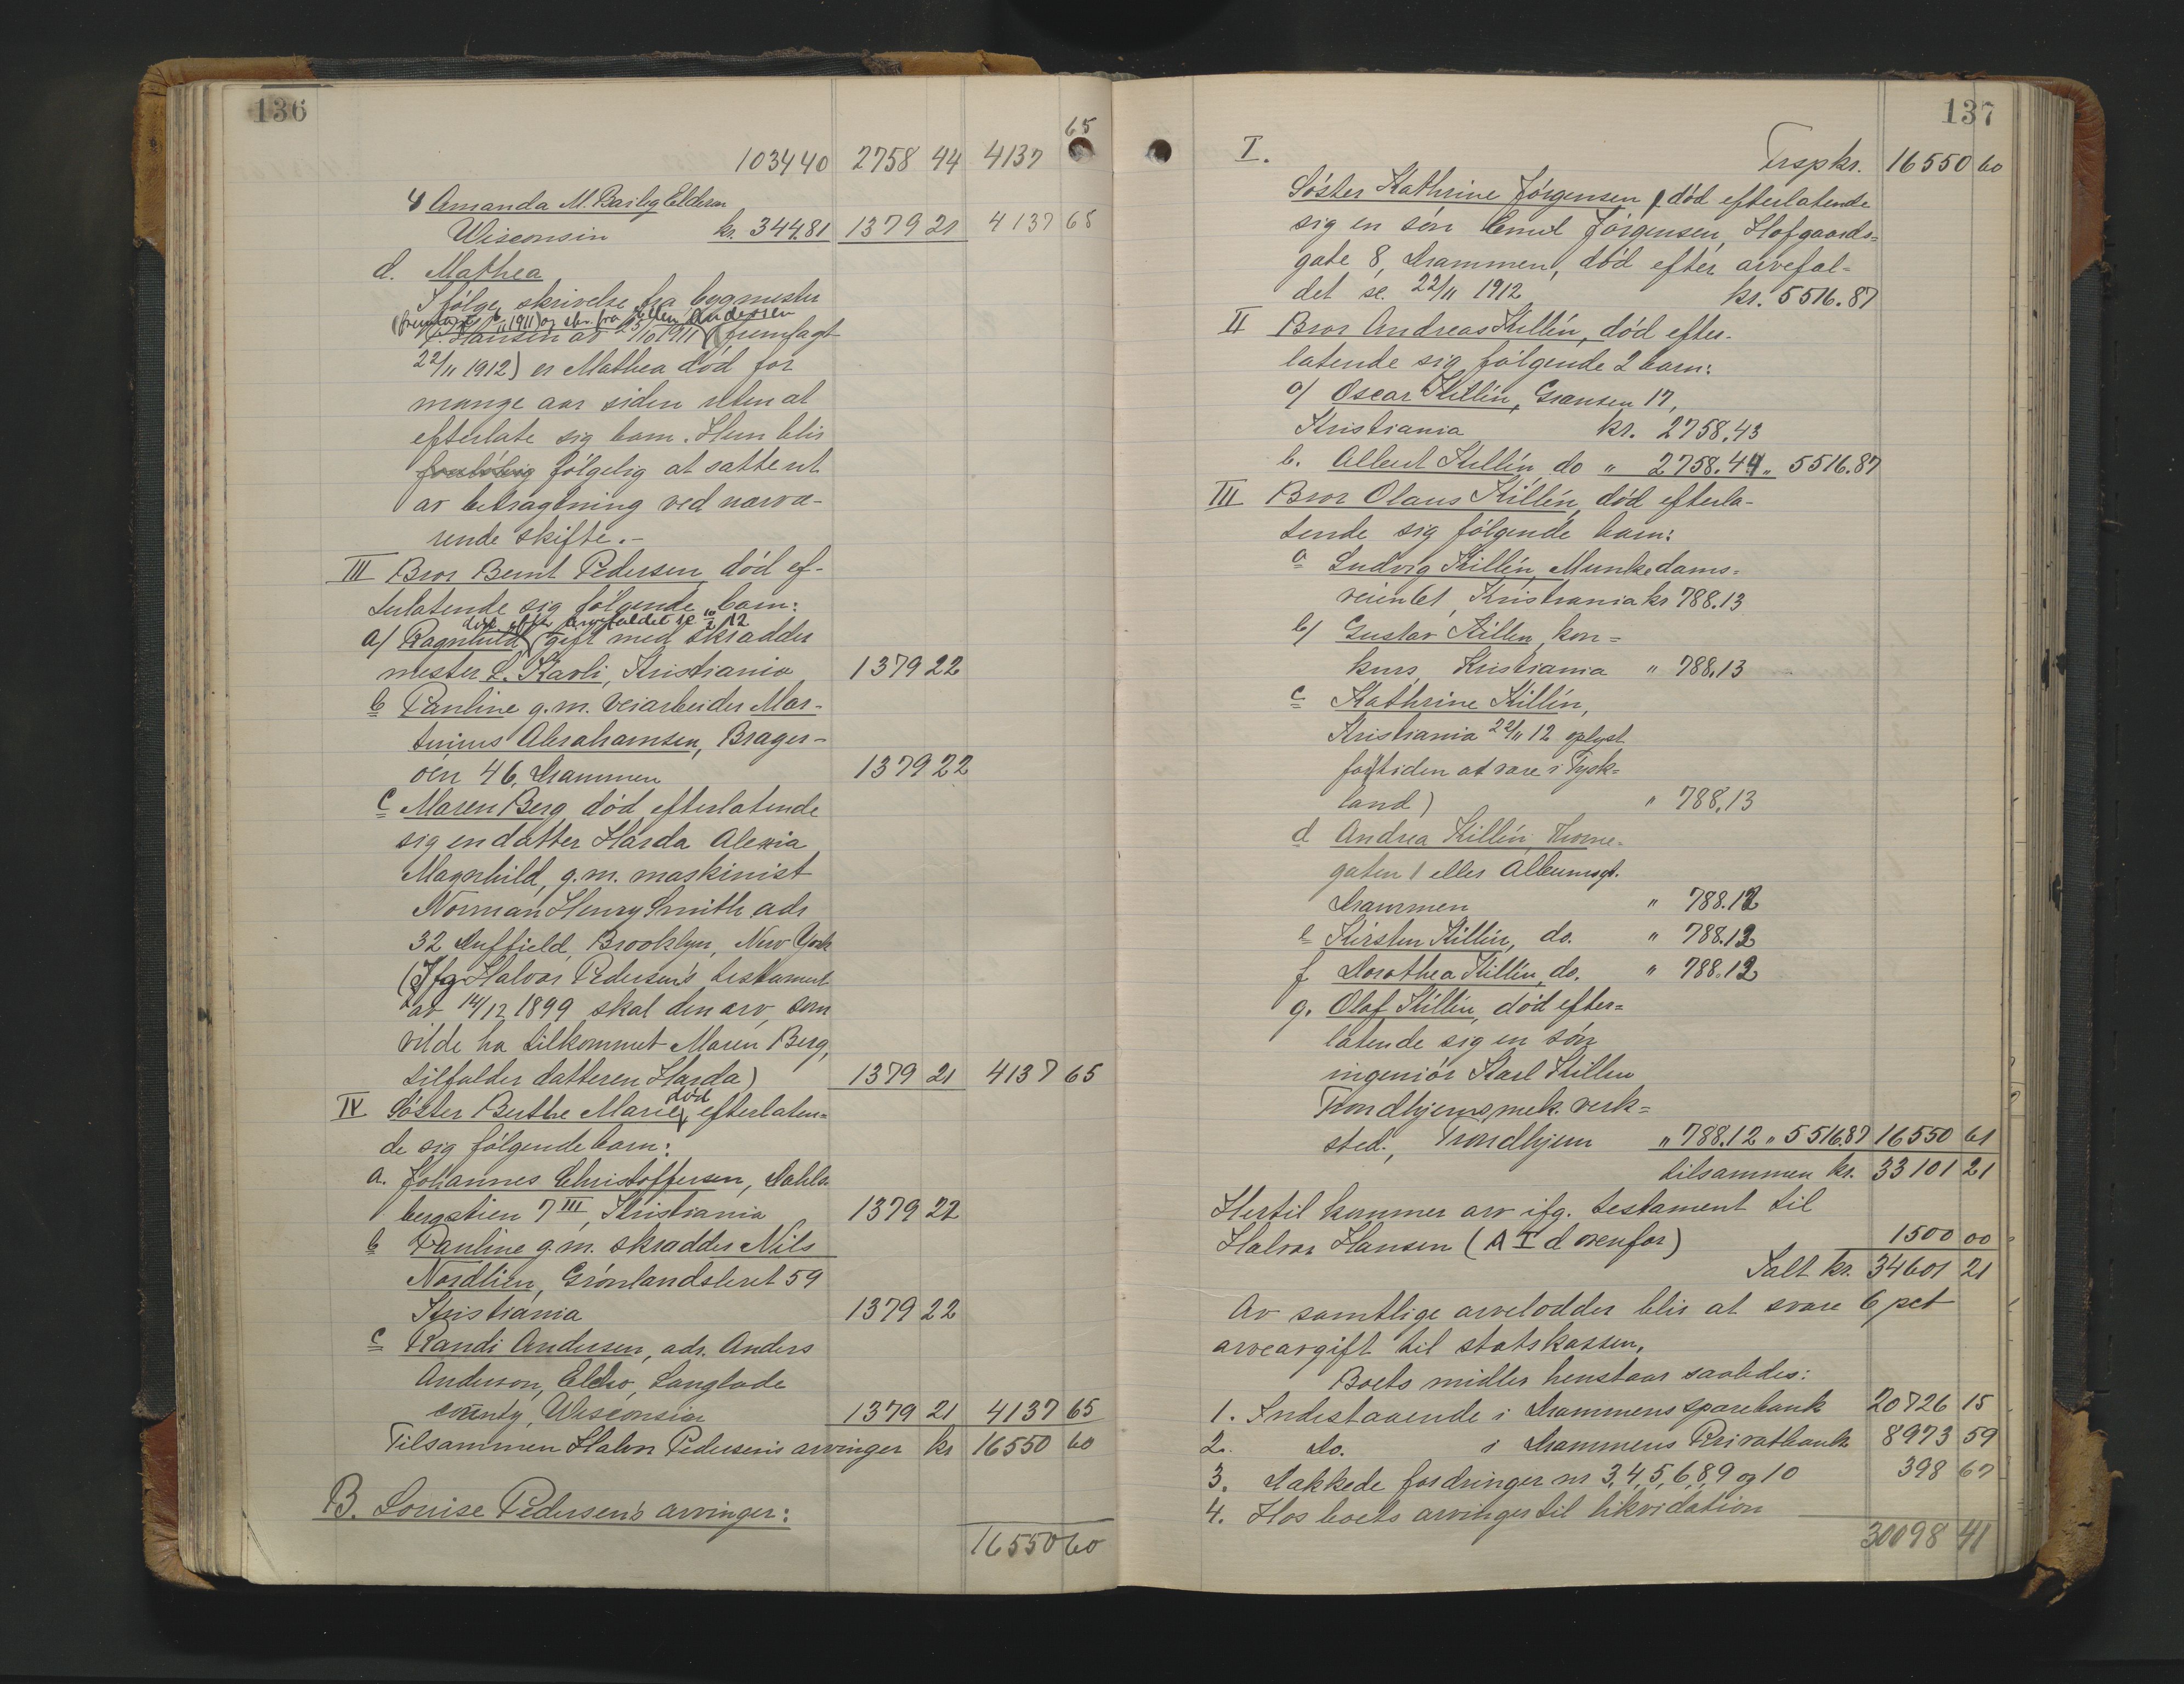 136
65
1034 40 2758 44 4137
4 Amanda M. Bailey Elderon
Wisconsin kr. 344.81 1379 21 4137 65
d. Mathea
Ifølge skrivelse fra bygmester
(fremlagt 6/11 1911) og skr. fra Ellen Andersen
P. Hansen av 25/10 1911 (fremlagt
22/11 1912) er Mathea død for
mange aar siden uten at
efterlate sig barn. Hun blir
følgelig at sætte ut
av betragtning ved nærvæ-
rende skifte.-
III Bror Bernt Pedersen, død ef-
terlatende sig følgende barn:
død efter arvefaldet se 10/2 12
a/ Ragnhild, gift med skrædder
mester L. Karli, Kristiania 1379 22
b Pauline g.m. veiarbeider Mar-
tinius Abrahamsen, Brager-
øen 46, Drammen 1379 22
c Maren Berg død efterlatende
sig en datter Harda Alexia
Magnhild, g.m. maskinist
Norman Henry Smith adr
32 Duffield, Brooklyn, New York
(Ifg Halvor Pedersen's testament
av 14/12 1899 skal den arv, som
vilde ha tilkommet Maren Berg,
tilfalder datteren Harda) 1379 21 4137 65
IV Søster Berthe Marie, død efterlaten-
de sig følgende barn:
a. Johannes Christoffersen, Dahls-
bergstien 7 III, Kristiania 1379 22
b Pauline g.m. skrædder Nils
Nordlien, Grønlandsleret 59
Kristiania 1379 22
c Randi Andersen, adr. Anders
Anderson, Elcho, Langlade
county, Wisconsin 1379 21 4137 65
Tilsammen Halvor Pedersen's arvinger kr 16550 60
B. Louise Pedersen's arvinger:
16550 60
137
I. Trspkr. 16550 60
Søster Kathrine Jørgensen, død efterlatende
sig en søn Emil Jørgensen, Hofgaards-
gate 8, Drammen, død efter arvefal-
det se. 22/11 1912 kr. 5516.87
II Bror Andreas Killén, død efter-
latende sig følgende 2 barn:
a/ Oscar Killén, Grænsen 17,
Kristiania kr. 2758.43
b. Albert Killén do " 2758.44 " 5516.87
III Bror Olaus Killén, død efterla-
tende sig følgende barn:
a Ludvig Killén, Munkedams-
veien 61, Kristiania kr 788.13
b/ Gustav Killén, kon-
kurs, Kristiania " 788.13
c Kathrine Killén,
Kristiania 22/11 12 oplyst
fortiden at være i Tysk-
land) " 788.13
d Andrea Killén, Torne-
gaten 1 eller Albumsgt.
Drammen " 788.12
e Kirsten Killén, do. " 788.12
f Dorothea Killén, do. " 788.12
g. Olaf Killén, død efter-
latende sig en søn
ingeniør Karl Killén
Trondhjems mek. verk-
sted., Trondhjem " 788.12 " 5516.87 16550 61
tilsammen kr. 33101 21
Hertil kommer arv ifg. testament til
Halvor Hansen (A I d ovenfor) 1500 00
Ialt kr. 34601 21
Av samtlige arvelodder blir at svare 6 pct
arveavgift til statskassen.
Boets midler henstaar saaledes:
1. Indestaaende i Drammens sparebank 20726 15
2. Do. i Drammens Privatbank 8973 59
3. Dækkede fordringer nr 3, 4, 5, 6, 8, 9 og 10 398 67
4. Hos boets arvinger til likvidation
30098 41